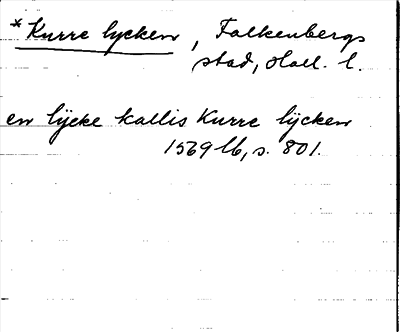 *Kurre lycken, Falkenbergs
stad, Hall. l.
en lÿcke kallis Kurre lÿcken
1569 lb, s. 801.